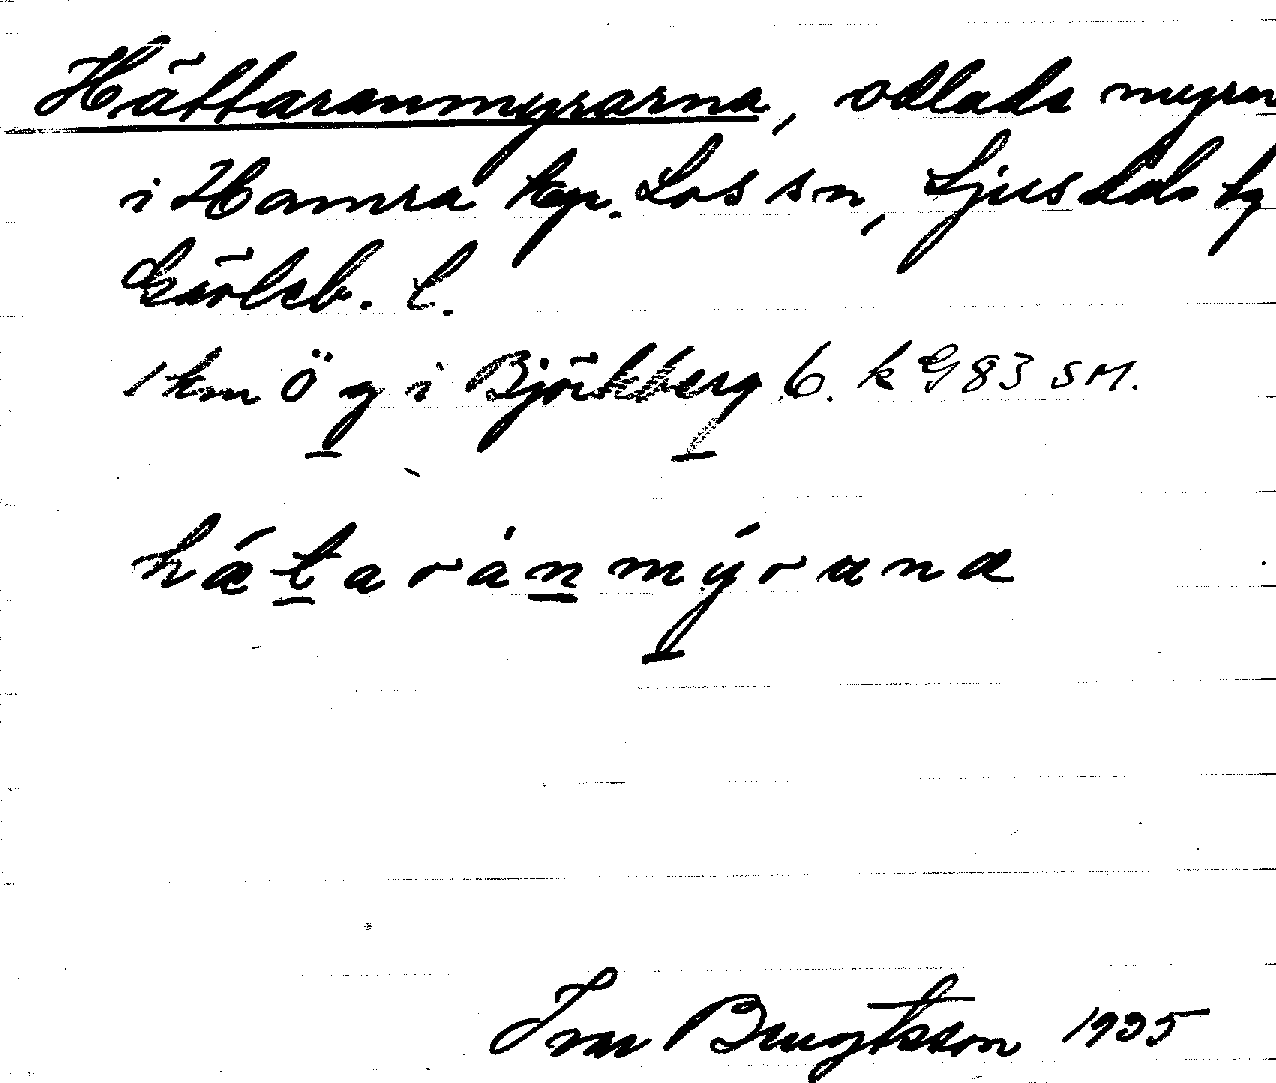 Hättaranmyrarna, odlade myrar
i Hamra kp. Los sn, Ljusdals tg
Gävleb. l.
1 km Ö g i Björkberg 6. k G 83 SM.
hǽtaránmýrʉna
Ivar Bengtsson 1935